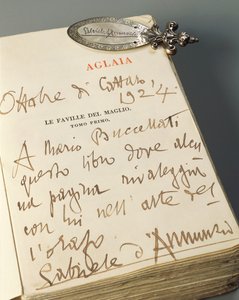 AGLAIA
Ottobre di Cattaro,
1924
LE FAVILLE DEL MAGLIO.
TOMO PRIMO.
A Mario Buccellati
questo libro dove alcu
na pagina rivaleggia
con lui nell'arte del
l'orafo.
Gabriele d'Annunzio